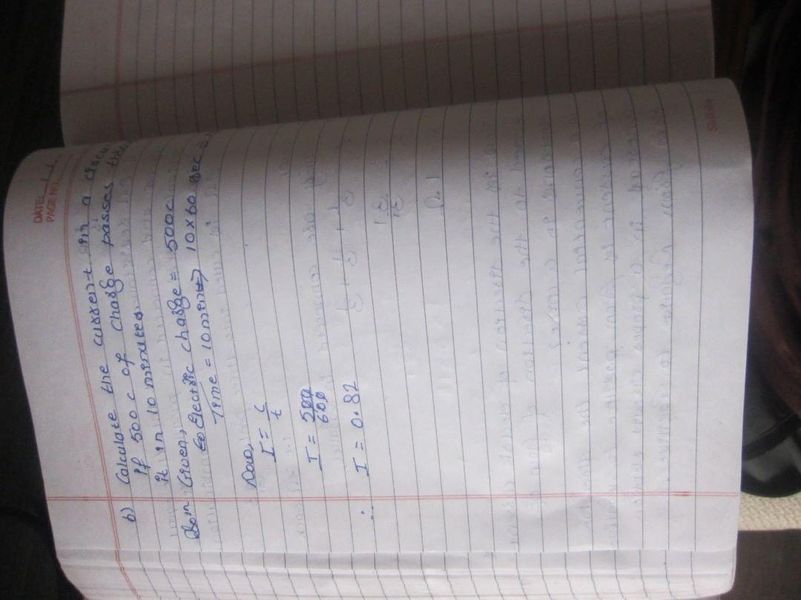 DATE
PAGE NO
b) Calculate the current in a
if 500 c of charge passes
it in 10 minutes
Soln Given,
Electric charge = 500c
Time = 10min → 10x60 sec
Now,
I = c/t
I = 500/600
∴ I = 0.82